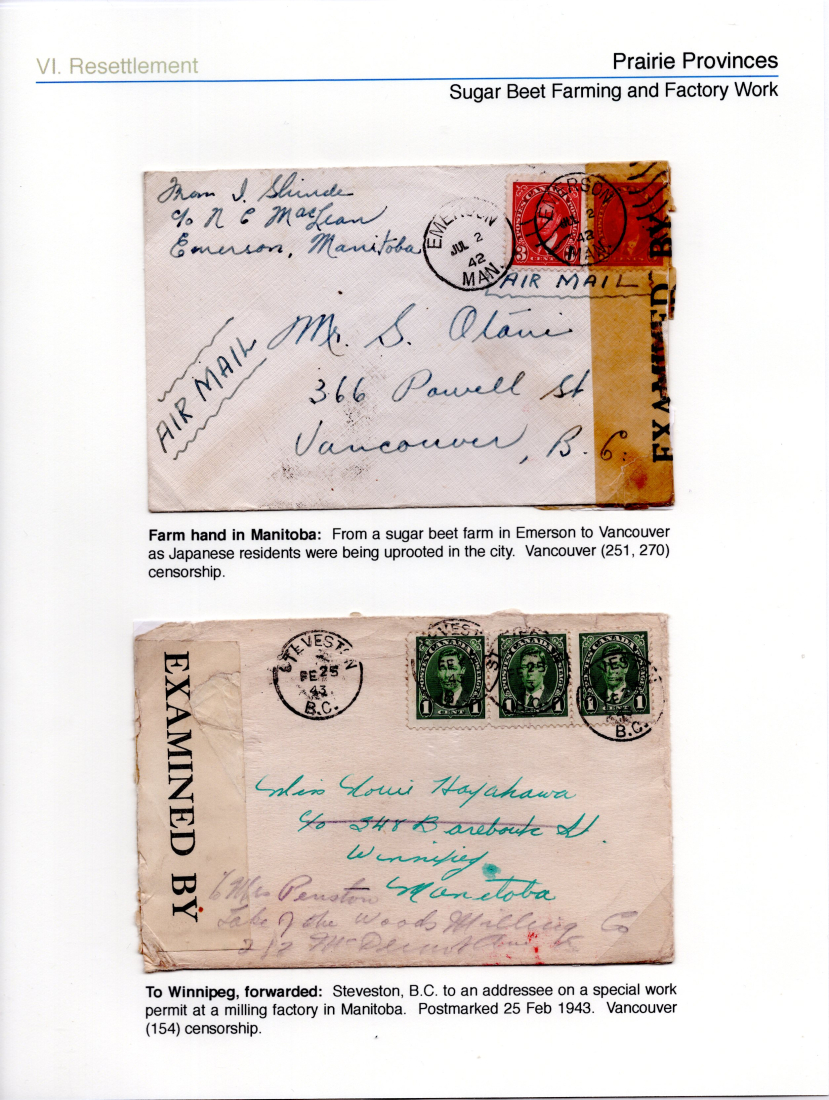 VI. Resettlement
Prairie Provinces
Sugar Beet Farming and Factory Work
From I. Shinde
c/o N C MacLean
Emerson, Manitoba
EMERSON
JUL 2
42
MAN.
EMERSON
JUL 2
42
MAN.
POSTES CANADA POSTAGE
3 CENTS
AIR MAIL
EXAMINED BY
Mr. S. Otani
366 Powell St
Vancouver, B.C.
AIR MAIL
Farm hand in Manitoba: From a sugar beet farm in Emerson to Vancouver
as Japanese residents were being uprooted in the city. Vancouver (251, 270)
censorship.
EXAMINED BY
STEVESTON
FE 25
43
B.C.
POSTES CANADA POSTAGE
1 CENT 1
1 1
1 1
B.C.
Miss Hayakawa
c/o 348 St.
Winnipeg
Manitoba
c/o Mrs Penston
Lake of the Woods Milling Co
212 McDermot Ave
To Winnipeg, forwarded: Steveston, B.C. to an addressee on a special work
permit at a milling factory in Manitoba. Postmarked 25 Feb 1943. Vancouver
(154) censorship.